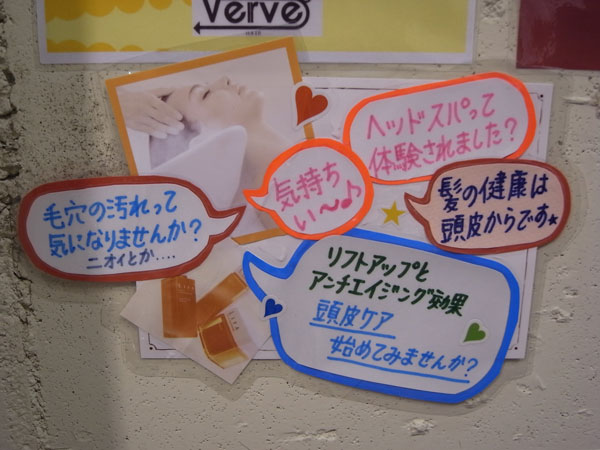 Verve
ヘッドスパって
体験されました?
気持ち
い〜♪
毛穴の汚れって
気になりませんか?
ニオイとか....
髪の健康は
頭皮からです★
リフトアップと
アンチエイジング効果
頭皮ケア
始めてみませんか?